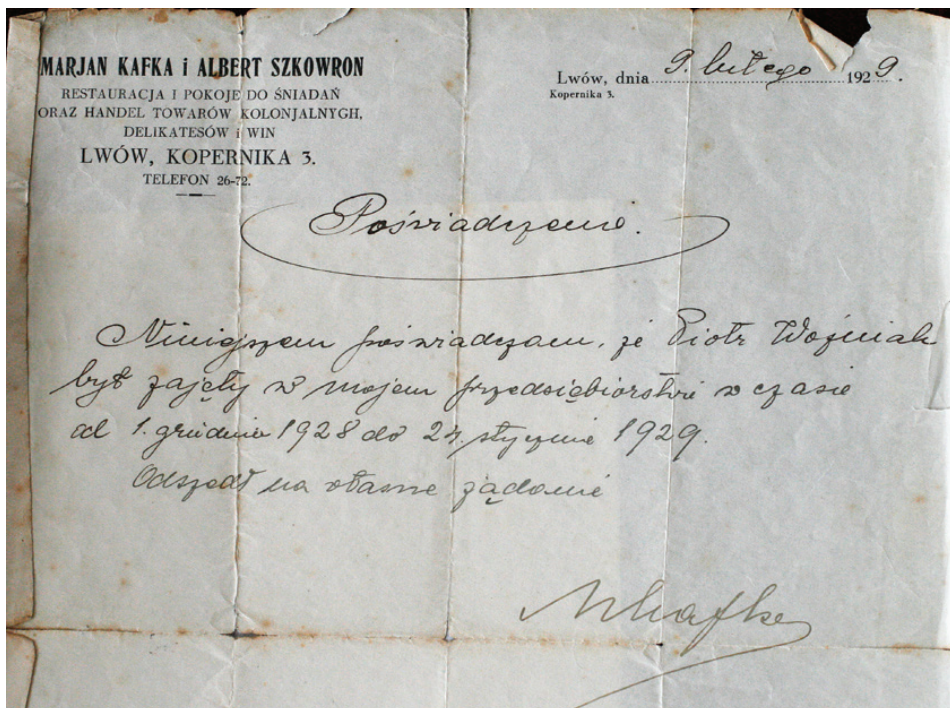 MARJAN KAFKA i ALBERT SZKOWRON
RESTAURACJA I POKOJE DO ŚNIADAŃ
ORAZ HANDEL TOWARÓW KOLONJALNYGH,
DELIKATESÓW i WIN
LWÓW, KOPERNIKA 3.
TELEFON 26-72.
Lwów, dnia 9. lutego 1929.
Kopernika 3.
Poświadczenie.
Niniejszem poświadczam, że Piotr Woźniak
był zajęty w mojem przedsiębiorstwie w czasie
od 1. grudnia 1928 do 24. stycznia 1929.
Odszedł na własne żądanie
MKafka